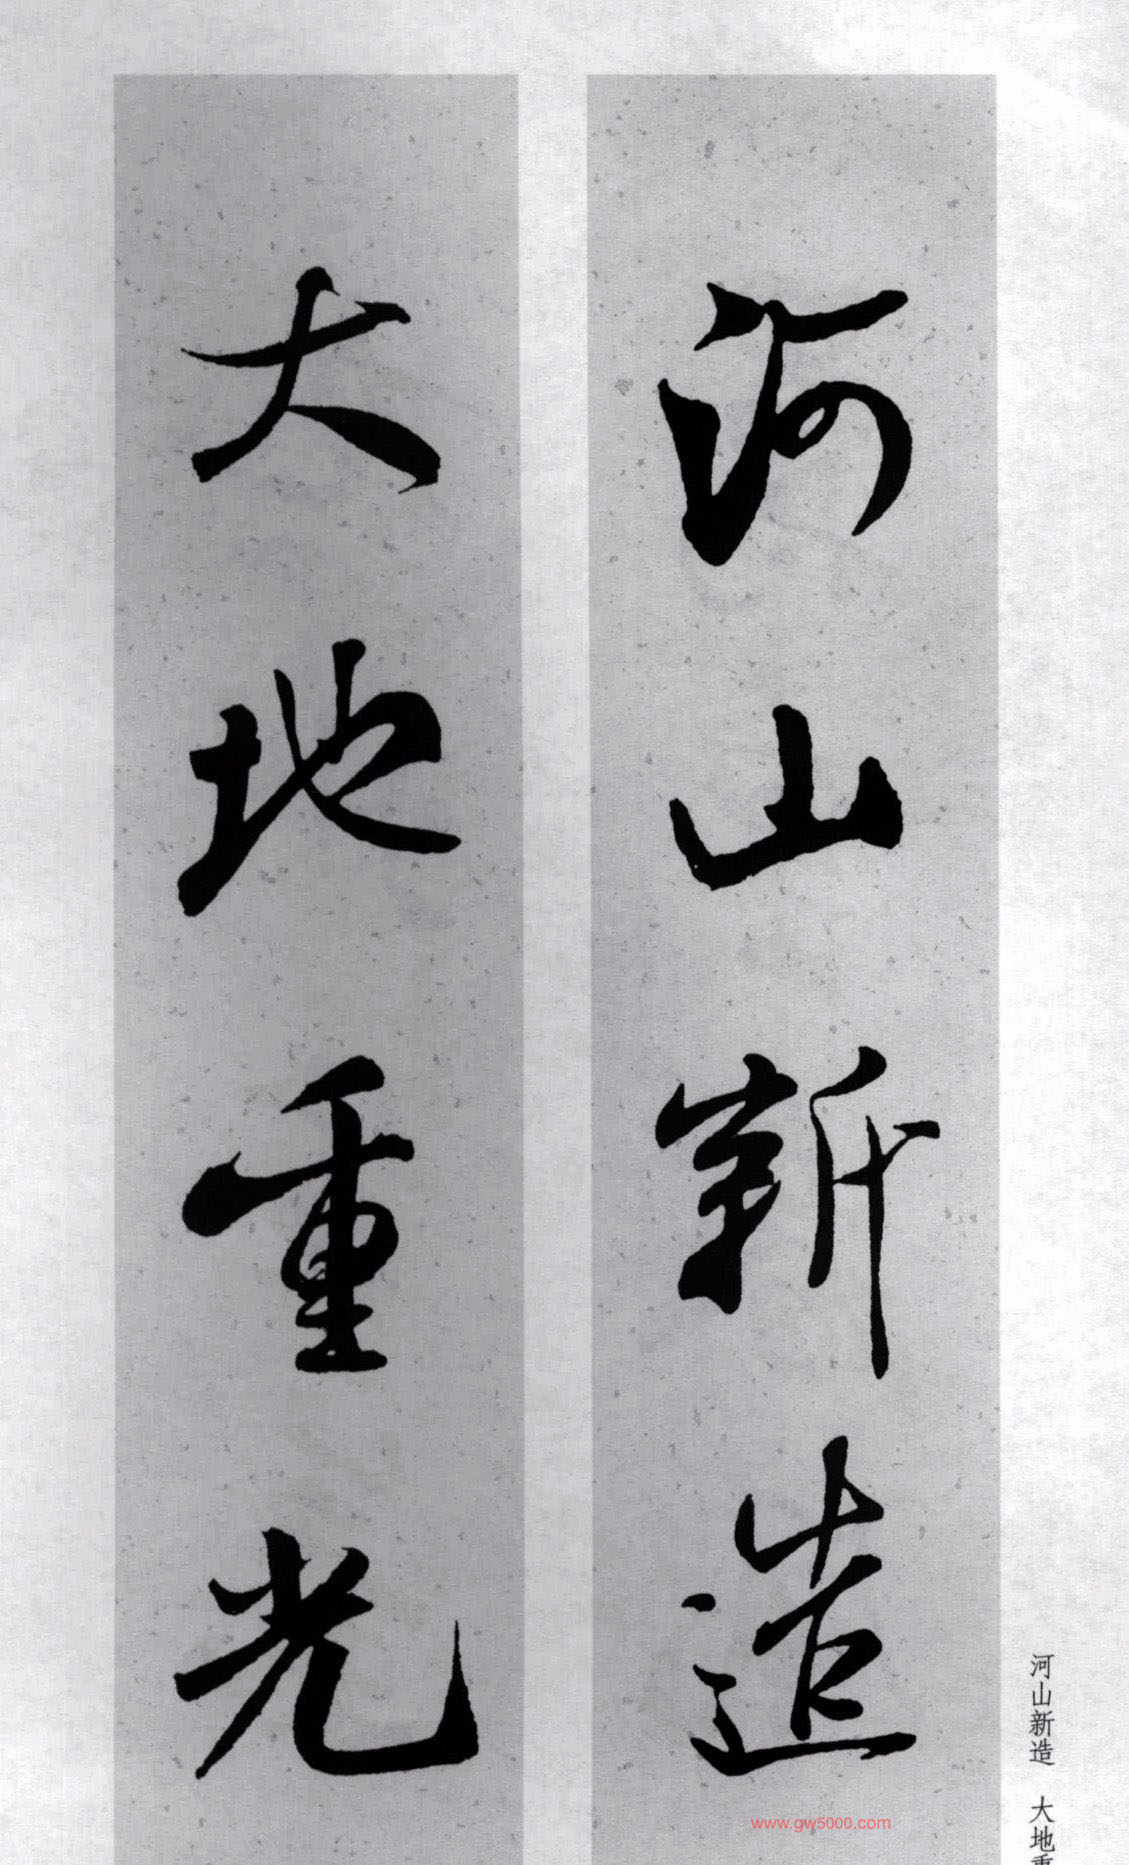 河山新造
大地重光
河山新造 大地重
www.gw5000.com